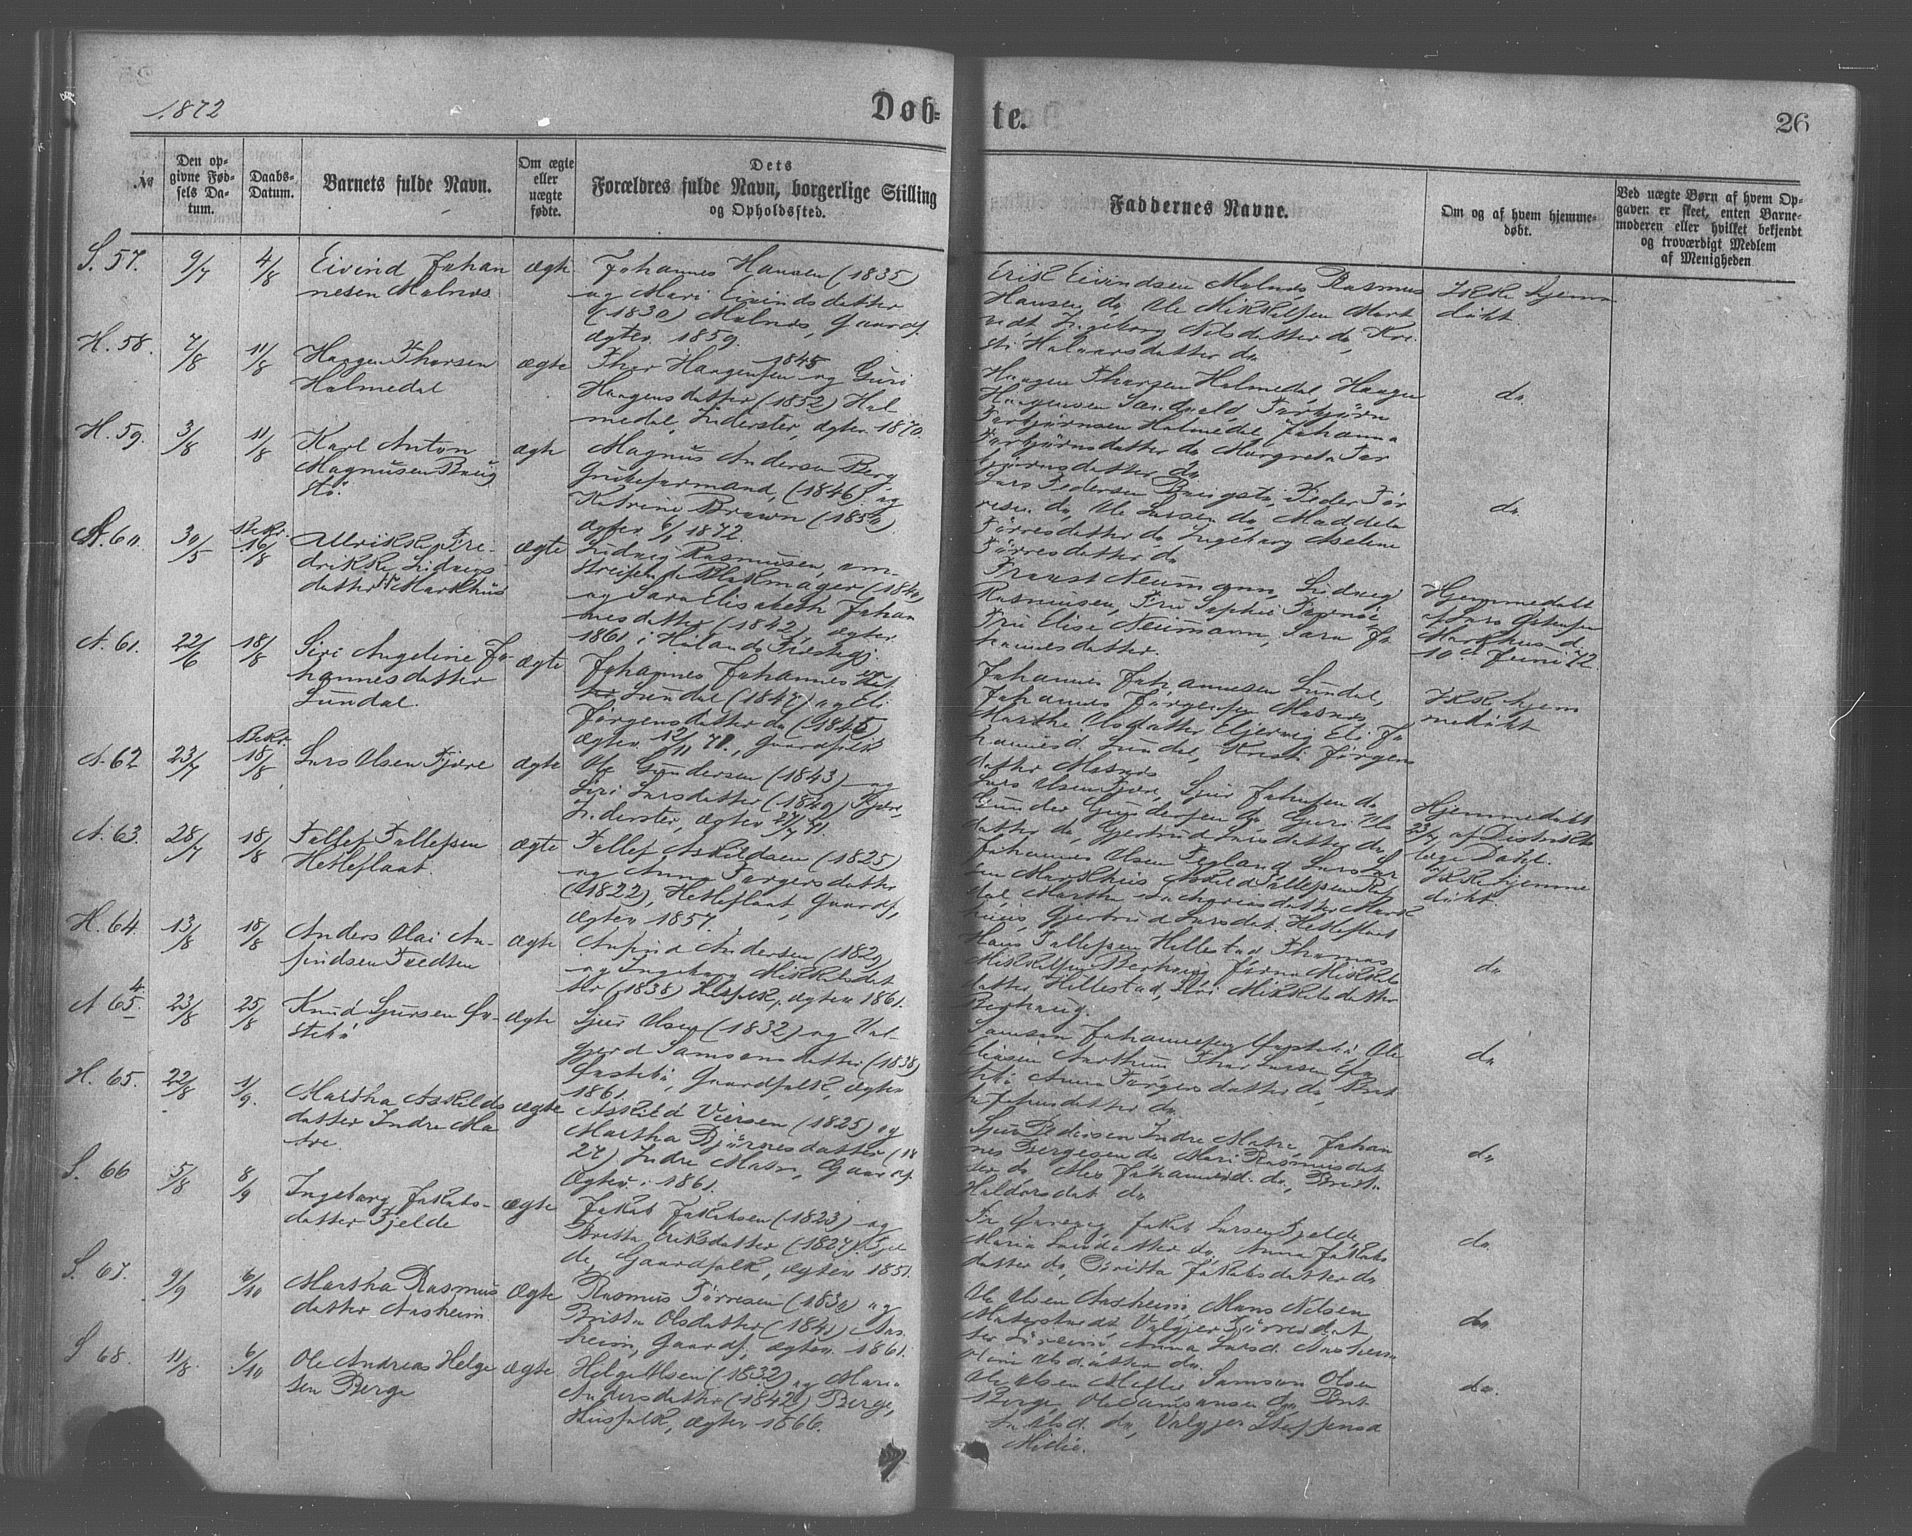 1872
Døb=
te.
26
No
Den op-
givne Fød-
sels Da-
tum.
Daabs-
Datum.
Barnets fulde Navn.
Om ægte
eller
uægte
fødte.
Dets
Forældres fulde Navn, borgerlige Stilling
og Opholdssted.
Faddernes Navne.
Om og af hvem hjemme-
døbt.
Ved uægte Børn af hvem Op-
gaven er skeet, enten Barne-
moderen eller hvilket bekjendt
og troværdigt Medlem
af Menigheden
S. 57.
9/7
4/8
Eivind Johan
nesen Malnæs
ægte
Johannes Hansen (1835)
og Mari Eivindsdatter
(1830) Malnæs, Gaardf.
ægtev. 1859.
Erik Eivindsen Malnæs, Rasmus
Hansen do, Ole Mikkelsen Mart
vedt, Ingeborg Nilsdatter do, Kri
sti Halvorsdatter do
Ikke hjem
døbt.
H. 58.
7/8
11/8
Haagen Thorsen
Halmedal
ægte
Thor Haagensen 1845 og Guri
Haagensdatter (1852) Hal
medal, Inderster, ægtev. 1870.
Haagen Thorsen Halmedal, Haagen
Haagensen Sandvold, Torbjørn
Torbjørnsen Halmedal, Johanna
Torbjørnsdatter do, Margreta Tor
bjørnsdatter do
do
H. 59.
3/8
11/8
Karl Anton
Magnusen Baug
stø.
ægte
Magnus Andersen Berg
Grubeformand, (1846) og
Katrine Brown (1850)
ægtev. 6/1 1872.
Lars Pedersen Baugstø, Peder Tør
resen do, Ole Larsen do, Maddela
Tørresdatter do, Ingeborg Aselene
Tørresdatter do
do
A. 60.
30/5
Bekr.
16/8
Ullrikke Fre-
drikke Ludvigs
datter Markhus
ægte
Ludvig Rasmusen, om-
streifende Blikmager (1840)
og Sara Elisabeth Johan
nesdatter (1842), ægtev.
1861 i Hølands Præstegj.
Frantz Neumann, Ludvig
Rasmusen, Fru Sophie
Fru Elise Neumann, Sara Jo
hannesdatter.
Hjemmedøbt
af Lars Østensen
Markhus d.
10de Juni 72.
A. 61.
22/6
18/8
Siri Angeline Jo-
hannesdatter
Sundal.
ægte
Johannes Johannes
Sundal (1847) og Eli
Jørgensdatter do (1845)
ægtev. 12/11 71., Gaardfolk
Johannes Johannesen Sundal,
Johannes Jørgensen Matnæs,
Marthe Olsdatter Eljervig, Eli Jo
hannesd. Sundal, Kristi Jørgens
datter Matnæs
Ikke hjem
medøbt
A. 62
23/7
Bekr.
18/8
Lars Olsen Fjære
ægte
Ole Gundersen (1843) og
Siri Larsdatter (1849) Fjære,
Inderster, ægtev. 27/7 71.
Lars Olsen Fjære, Sjur Johnsen do
Gunder Gundersen do, Guri Ols
datter do, Gjertrud Larsdatter do
Hjemmedøbt
23/7 af Distrikts
læge Dahl.
A. 63.
28/7
18/8
Tollef Tollefsen
Hetleflaat.
ægte
Tollef Askildsen (1825)
og Anna Torgersdatter
(1822), Hetleflaat, Gaardf,
ægtev. 1857.
Johannes Olsen Tegland, Lars Lar
sen Markhus, Askild Tollefsen Rul
dal, Martha Zachariasdatter Mark
huus, Gjertrud Larsdat. Hetleflaat
Ikke hjemme
døbt.
H. 64.
13/8
18/8
Anders Olai An-
findsen Tvedten
ægte
Anfind Andersen (1829)
og Ingeborg Mikkelsdat
ter (1838) Husfolk, ægtev. 1861.
Hans Tollefsen Hillestad, Thomas
Mikkelsen Berhaug, Jørna Mikkels
datter Hillestad, Siri Mikkelsdatter
Berhaug.
do
A 65.
23/8
25/8
Knud Sjursen Øv-
stebø
ægte
Sjur Olsen (1832) og Val-
gjerd Samsonsdatter (1838)
Øvstebø, Gaardfolk, ægtev.
1861.
Samson Johannesen Øvstebø, Ole
Eliasen Aarthun, Thor Larsen Øv
stebø, Anna Torgersdatter do, Brit
ta Johnsdatter do.
do
H. 65.
22/8
1/9.
Martha Askilds
datter Indre Ma
tre.
ægte
Askild Viersen (1825) og
Martha Bjørnesdatter (18
27) Indre Matre, Gaardf.
ægtev. 1861.
Sjur Pedersen Indre Matre, Johan
nes Bergesen do, Mari Rasmusdat
ter do, Alis Johannesd. do, Brit
Haldorsdat do
do
S. 66
5/8
8/9
Ingeborg Jakobs-
datter Fjelde
ægte
Jakob Jakobsen (1823) og
Britta Eriksdatter (1827) Fjel
de, Gaardfolk, ægtev. 1851.
Jakob Larsen Fjelde
Maria Larsdatter do, Anna Jakobs
datter do, Britta Jakobsdatter do
do
S. 67.
9/9
6/10
Martha Rasmus
datter Aasheim.
ægte
Rasmus Tørresen (1830) og
Britta Olsdatter (1841) Aas
heim, Gaardf, ægtev. 1861.
Ole Olsen Aasheim, Mons Nilsen
Materstvedt, Valgjer Tørresdat
ter, Anna Larsd. Aasheim
Olsdatter do.
do
S 68.
11/8.
6/10
Ole Andreas Helge
sen Berge
ægte
Helge Olsen (1832) og Mari
Andersdatter (1842) Berge,
Husfolk, ægtev. 1866.
Ole Olsen, Samson Olsen
Berge, Ole Samsonsen do, Brit
ta Olsd. do, Valgjer Staffensd
do.